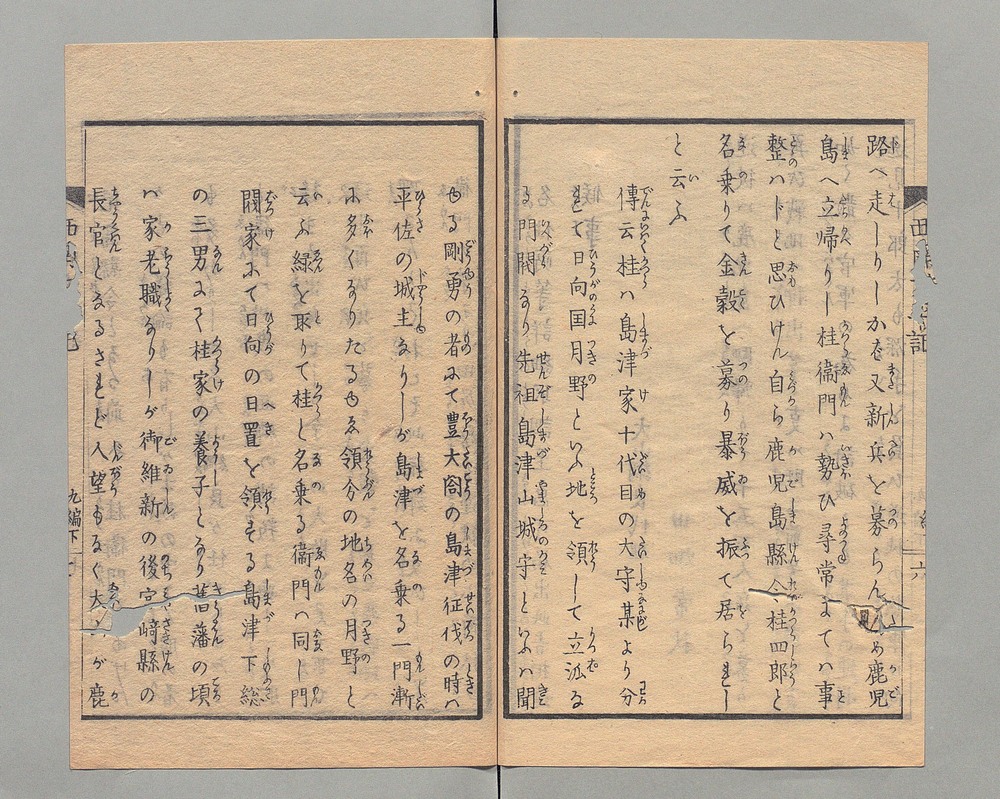 路へ走しりしかば又新兵を募らん為め鹿児
島へ立帰りし桂衞門ハ勢ひ尋常まてハ事
整ハドと思ひけん自ら鹿児島縣令桂四郎と
名乗りて金穀を募り暴威を振て居られし
と云ふ
傳云桂ハ島津家十代目の大守某より分
れて日向国月野といふ地を領して立派な
る門閥なり先祖島津山城守といふハ聞
ゆる剛勇の者にて豊大閤の島津征伐の時ハ
平佐の城主なりしが島津を名乗る一門漸
に多くなりたるゆゑ領分の地名の月野と
云ふ縁を取りて桂と名乗る衞門ハ同し門
閥家にて日向の日置を領する島津下総
の三男にて桂家の養子となり舊藩の頃
ハ家老職なりしが御維新の後宮﨑縣の
長官となるされど人望もなく大 が鹿
記
九編下
六